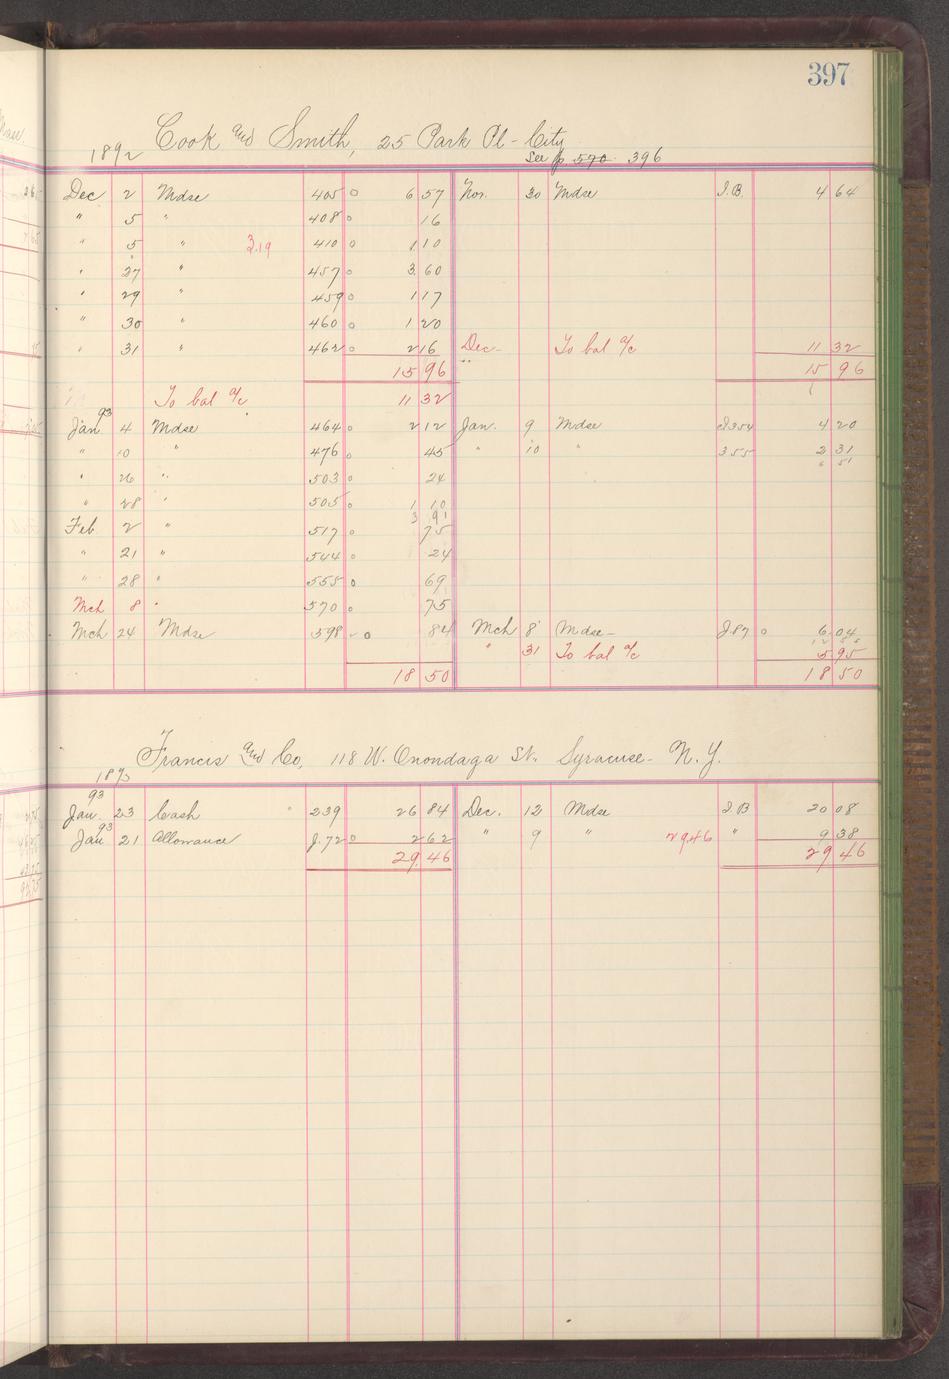 397
Cook and Smith, 25 Park Pl - City
1892 See p 570 396
Dec 2 Mdse 405 0 6 57 Nov. 30 Mdse I.B. 4 64
" 5 " 408 0 16
" 5 " 3.19 410 0 1 10
" 27 " 457 0 3 60
" 29 " 459 0 1 17
" 30 " 460 0 1 20
" 31 " 462 0 2 16 Dec- To bal a/c 11 32
15 96 15 96
To bal a/c 11 32
93
Jan 4 Mdse 464 0 2 12 Jan. 9 Mdse 354 4 20
" 10 " 476 0 45 " 10 355 2 31
" 26 " 503 0 24 6 51
" 28 " 505 0 1 10
3 91
Feb 2 " 517 0 75
" 21 " 544 0 24
" 28 " 555 0 69
Mch 8 " 570 0 75
Mch 24 Mdse 598 0 84 Mch 8 Mdse- J.87 0 6 04
" 31 To bal a/c 5 95
18 50 18 50
Francis and Co, 118 W. Onondaga St. Syracuse - N. Y.
93
Jan. 23 Cash 239 26 84 Dec. 12 Mdse I.B 20 08
93
Jan 21 Allowance J.72 0 2 62 " 9 " 29.46 " 9 38
29.46 29 46